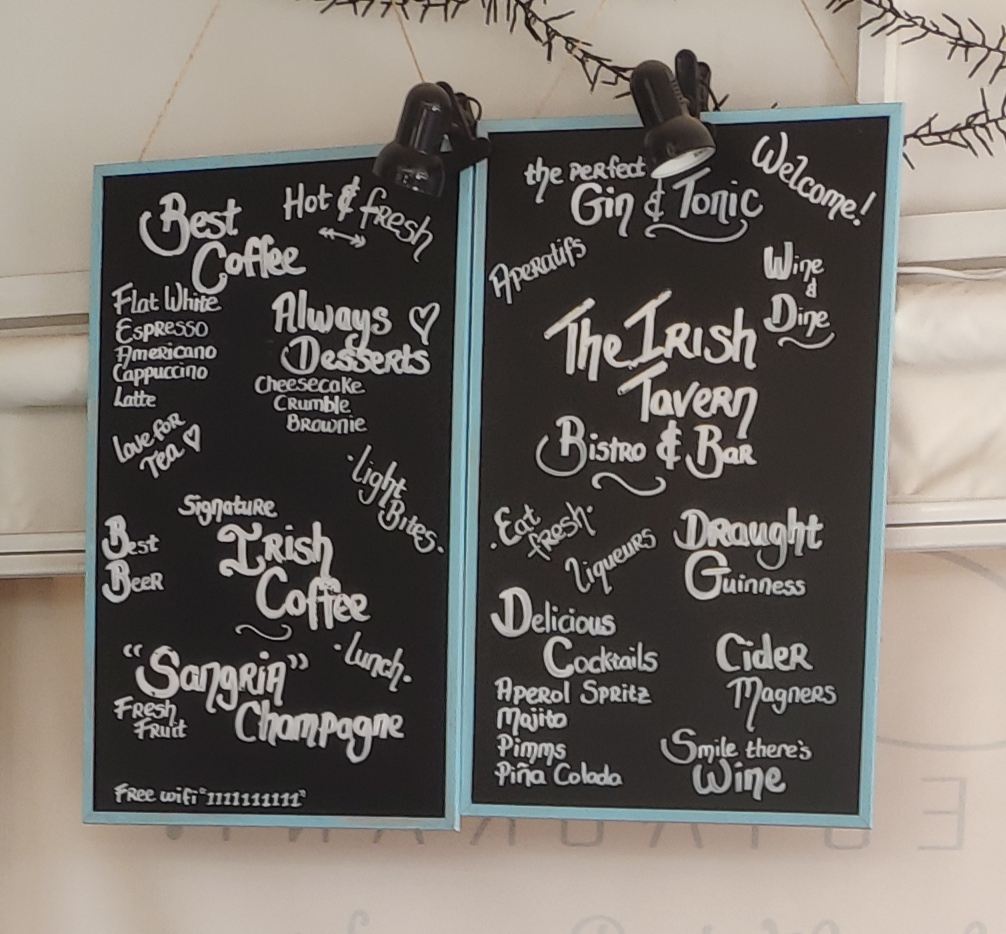 Best
Coffee
Hot & fresh
Flat White
Espresso
Americano
Cappuccino
Latte
Always
Desserts
Cheesecake
Crumble
Brownie
Love for
Tea
·Light
Bites·
Signature
Irish
Coffee
Best
Beer
"Sangria"
·Lunch·
Fresh
Fruit
Champagne
Free wifi "1111111111"
the perfect
Gin & Tonic
Welcome!
Aperatifs
Wine
&
Dine
The Irish
Tavern
Bistro & Bar
·Eat
fresh·
Liqueurs
Draught
Guinness
Delicious
Cocktails
Aperol Spritz
Mojito
Pimms
Piña Colada
Cider
Magners
Smile there's
Wine